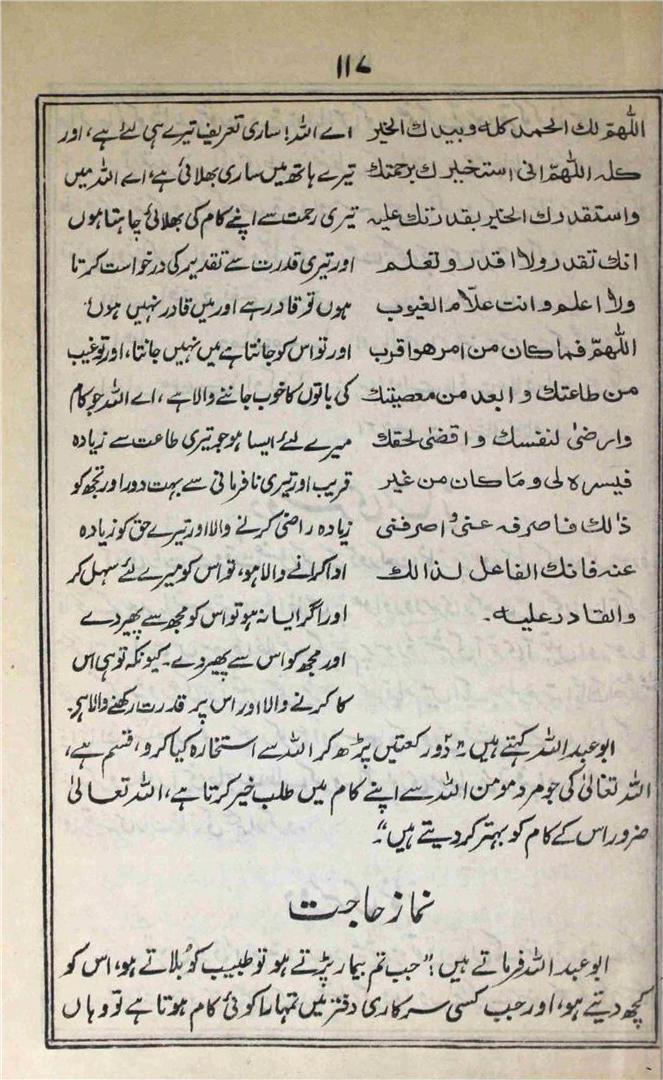 ۱۱۷
اللّٰهمّ لك الحمد كله وبيدك الخير
كله اللّٰهمّ انى استخيرك برحمتك
واستقدرك الخير بقدرتك عليه
انك تقدر ولا اقدر وتعلم
ولا اعلم وانت علّام الغيوب
اللّٰهمّ فما كان من امر هو اقرب
من طاعتك و ابعد من معصيتك
وارضىٰ لنفسك و اقضىٰ لحقك
فيسره لى وما كان من غير
ذٰلك فاصرفه عنى و اصرفنى
عنه فانك الفاعل لذالك
والقادر عليه۔
اے اللہ! ساری تعریف تیرے ہی لئے ہے، اور
تیرے ہاتھ میں ساری بھلائی ہے، اے اللہ میں
تیری رحمت سے اپنے کام کی بھلائی چاہتا ہوں
اور تیری قدرت سے تقدیر کی درخواست کرتا
ہوں تو قادر ہے اور میں قادر نہیں ہوں۔
اور تو اس کو جانتا ہے میں نہیں جانتا، اور تو غیب
کی باتوں کا خوب جاننے والا ہے، اے اللہ جو کام
میرے لئے ایسا ہو جو تیری طاعت سے زیادہ
قریب اور تیری نافرمانی سے بہت دور اور تجھ کو
زیادہ راضی کرنے والا اور تیرے حق کو زیادہ
ادا کرانے والا ہو، تو اس کو میرے لئے سہل کر
اور اگر ایسا نہ ہو تو اس کو مجھ سے پھیر دے
اور مجھ کو اس سے پھیر دے۔ کیونکہ تو ہی اس
کا کرنے والا اور اس پر قدرت رکھنے والا ہے۔
ابو عبد اللہ کہتے ہیں: "دو رکعتیں پڑھ کر اللہ سے استخارہ کیا کرو، قسم ہے،
اللہ تعالیٰ کی جو مرد مومن اللہ سے اپنے کام میں طلب خیر کرتا ہے، اللہ تعالیٰ
ضرور اس کے کام کو بہتر کر دیتے ہیں"۔
نماز حاجت
ابو عبد اللہ فرماتے ہیں: "جب تم بیمار پڑتے ہو تو طبیب کو بلاتے ہو، اس کو
کچھ دیتے ہو، اور جب کسی سرکاری دفتر میں تمہارا کوئی کام ہوتا ہے تو وہاں